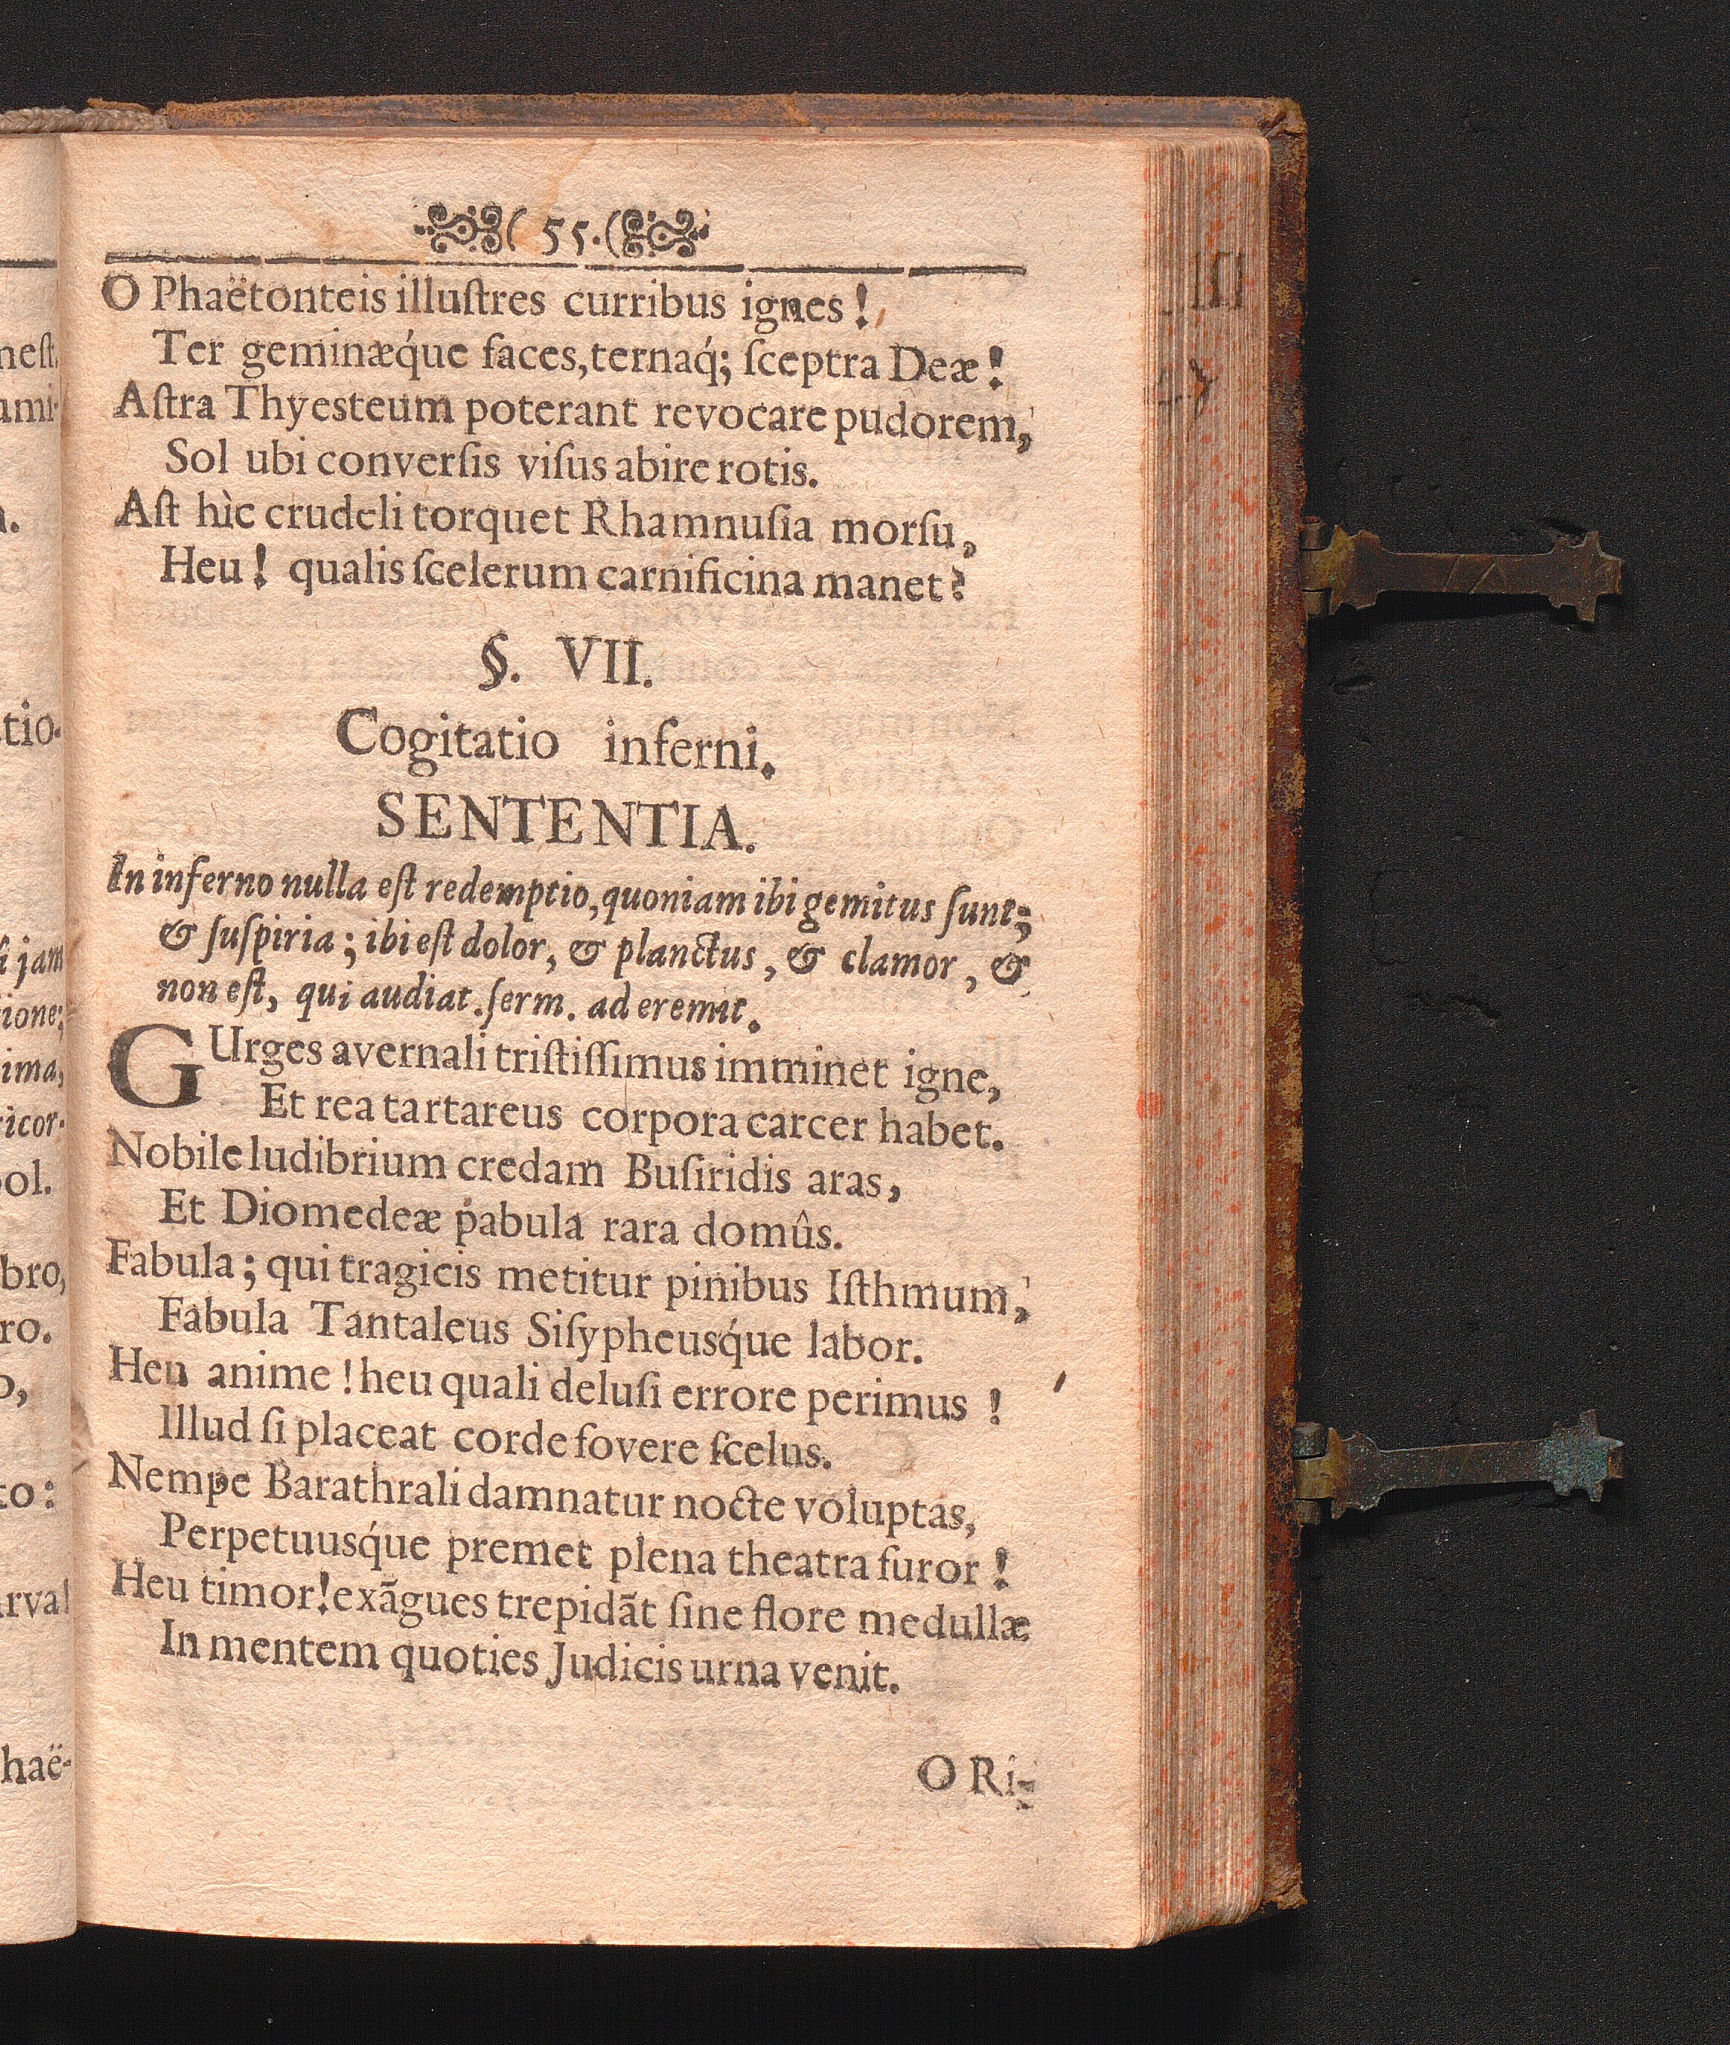 ( 55. (
O Phaëtonteis illuſtres curribus ignes!
Ter geminæq́ue faces, ternaq́; ſceptra Deæ!
Aſtra Thyesteum poterant revocare pudorem,
Sol ubi converſis viſus abire rotis.
Aſt hìc crudeli torquet Rhamnuſia morſu,
Heu! qualis ſcelerum carnificina manet?
§. VII.
Cogitatio inferni.
SENTENTIA.
In inferno nulla eſt redemptio, quoniam ibi gemitus ſunt;
& ſuſpiria; ibi eſt dolor, & planctus, & clamor, &
non eſt, qui audiat. ſerm. ad eremit.
GUrges avernali triſtiſſimus imminet igne,
Et rea tartareus corpora carcer habet.
Nobile ludibrium credam Buſiridis aras,
Et Diomedeæ pabula rara domûs.
Fabula; qui tragicis metitur pinibus Iſthmum,
Fabula Tantaleus Siſypheusq́ue labor.
Heu anime! heu quali deluſi errore perimus!
Illud ſi placeat corde fovere ſcelus.
Nempe Barathrali damnatur nocte voluptas,
Perpetuusq́ue premet plena theatra furor!
Heu timor! exãgues trepidãt ſine flore medullæ
In mentem quoties Judicis urna venit.
O Ri-